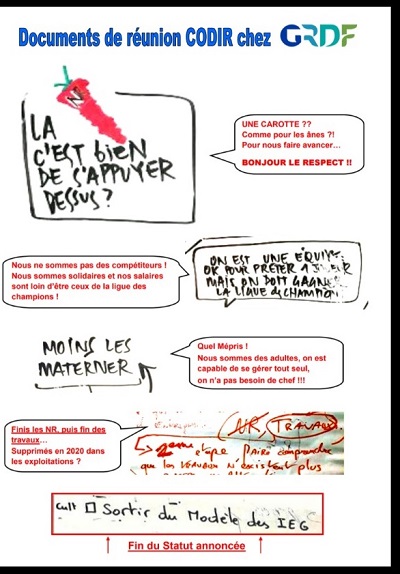 Documents de réunion CODIR chez GRDF
LA
C'EST bIEN
DE S'APPUYER
DESSUS ?
UNE CAROTTE ??
Comme pour les ânes ?!
Pour nous faire avancer…
BONJOUR LE RESPECT !!
Nous ne sommes pas des compétiteurs !
Nous sommes solidaires et nos salaires
sont loin d'être ceux de la ligue des
champions !
ON EST UNE ÉQUIPE
OK POUR PRÊTER 1 JOUEUR
MAIS ON DOIT GAGNER
LA LIGUE des CHAMPION
MOINS LES
MATERNER
Quel Mépris !
Nous sommes des adultes, on est
capable de se gérer tout seul,
on n'a pas besoin de chef !!!
Finis les NR, puis fin des
travaux…
Supprimés en 2020 dans
les exploitations ?
NR, TRAVAUX
2eme etape faire comprendre
que les travaux n'existent plus
cult Sortir du Modèle des IEG
Fin du Statut annoncée